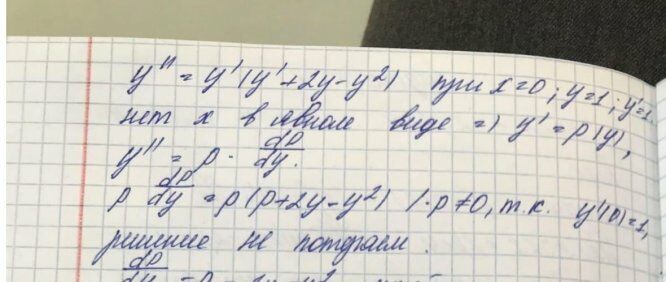 y'' = y'(y'+2y-y²) при x=0; y=1; y'=1.
нет x в явном виде => y' = p(y),
y'' = p · dp/dy.
p dp/dy = p(p+2y-y²) /·p≠0, т.к. y'(0)=1,
решение не потеряем.